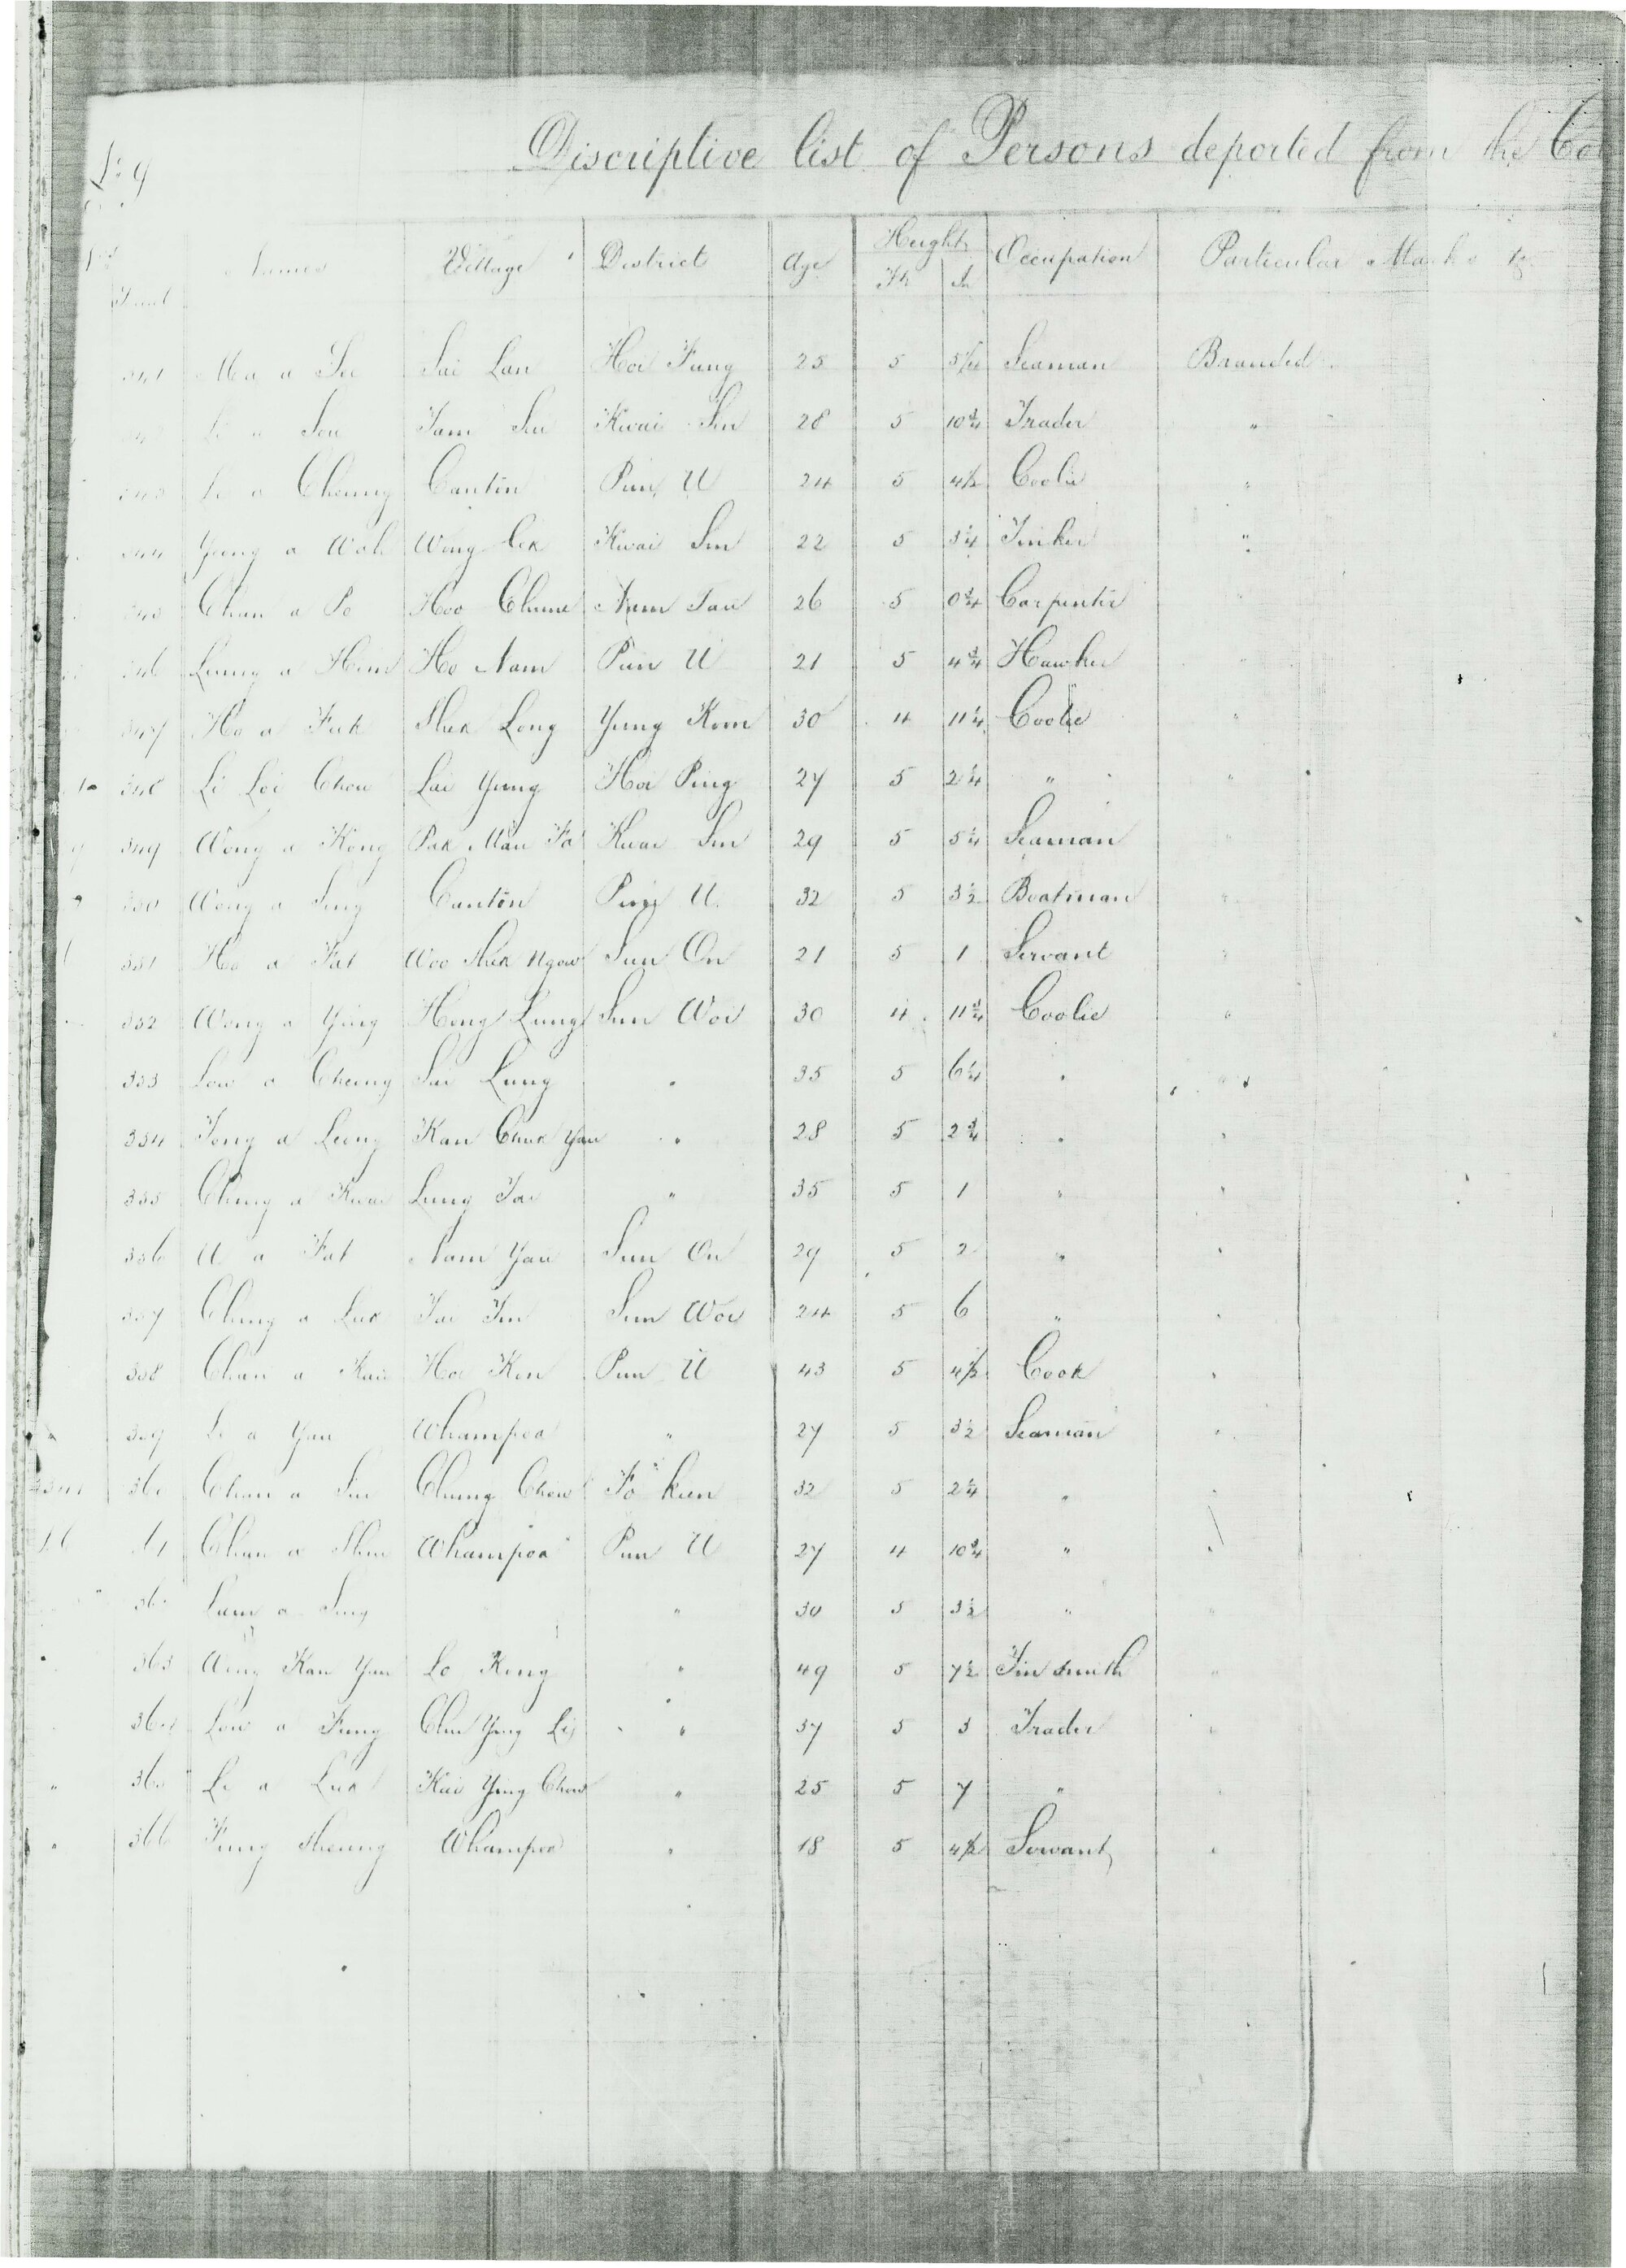 Discriptive list of Persons deported from the
No 9
Names Village District Age Height Ft In Occupation Particular Marks &c.
341 Ma a Sai Lan Hoi Fung 25 5 5 1/4 Seaman Branded
Li a Sou Tam Sui Kwai Sin 28 5 10 3/4 Trader "
343 Li a Cheung Canton Pun U 24 5 4 1/2 Coolie "
344 Yeung a Wah Wong Kwai Sin 22 5 3 1/4 Tinker "
345 Chan a Po Hoo Chune Nam Tau 26 5 0 3/4 Carpenter "
346 Leung a Him Ho Nam Pun U 21 5 4 3/4 Hawker "
347 Ho a Fuk Shek Long Yung Kom 30 4 11 1/4 Coolie "
348 Li Loi Chou Lai Yung Hoi Ping 27 5 2 1/4 " "
349 Wong a Kong Pak Man Fa Kwai Sin 29 5 5 1/4 Seaman "
350 Wong a Sing Canton Pun U. 32 5 3 1/2 Boatman "
351 Ho a Fat Woo Shek Ngow Sun On 21 5 1 Servant "
352 Wong a Ying Hong Lung Sun Woi 30 4 11 3/4 Coolie "
353 Low a Cheung Sai Lung " 35 5 6 1/4 " "
354 Tong a Leong Kau Chuk Yau " 28 5 2 3/4 " "
355 Chung a Kwai Lung Tai " 35 5 1 " "
356 U a Fat Nam Yau Sun On 29 5 2 " "
357 Chung a Luk Tai Tin Sun Woi 24 5 6 " "
358 Chan a Kai Hoi Ken Pun U 43 5 4 1/2 Cook "
359 Li a Yau Whampoa " 27 5 3 1/2 Seaman "
360 Chan a Sui Chung Chow Fo kien 32 5 2 1/4 " "
Chan a Shui Whampoa Pun U 27 4 10 3/4 " "
36 Lum a Sing " 30 5 3 1/2 " "
363 Wong Kau Yau Lo Kong " 49 5 7 1/2 Tin smith "
364 Low a Fung Chu Yung Li " 37 5 3 Trader "
365 Li a Luk Kai Ying Chow " 25 5 7 " "
366 Fung Sheung Whampoa " 18 5 4 1/2 Servant "